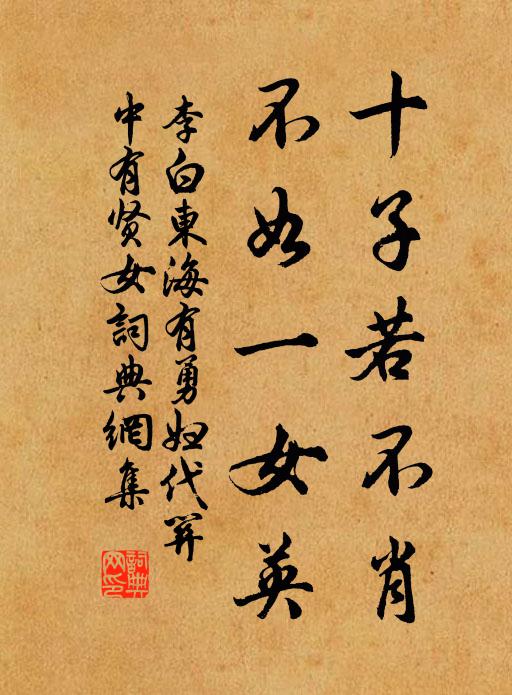 十子若不肖
不如一女英
李白東海有勇妇代關
中有贤女詞典網集
詞典
网印